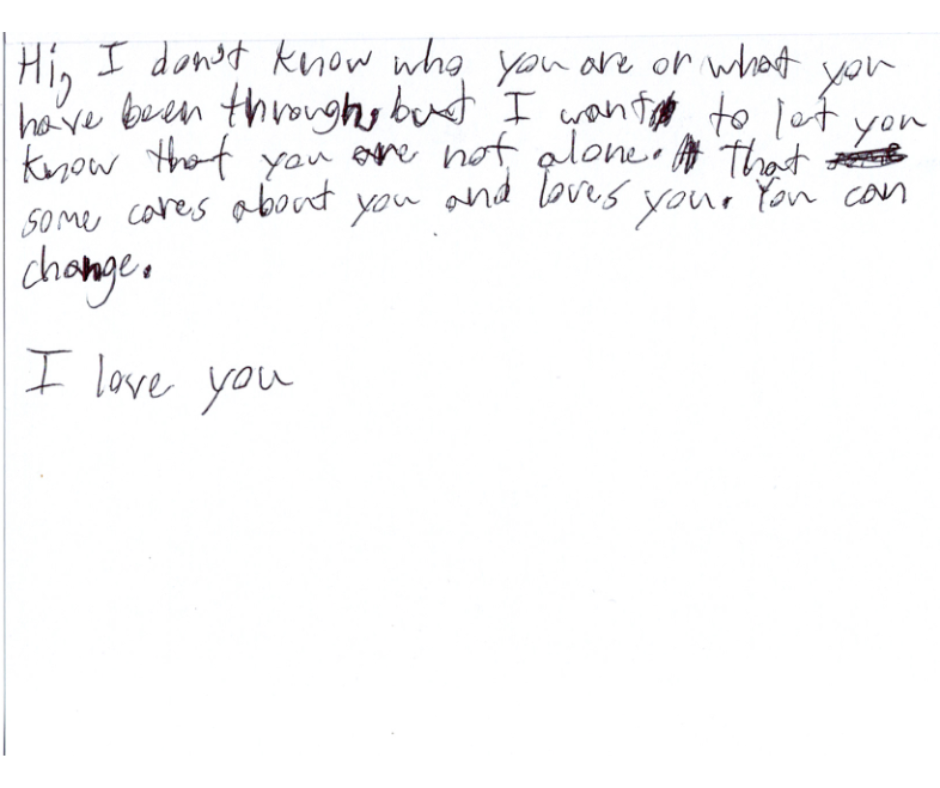 Hi, I don't know who you are or what you
have been through, but I want to let you
know that you are not alone. That
some cares about you and loves you. You can
change.
I love you